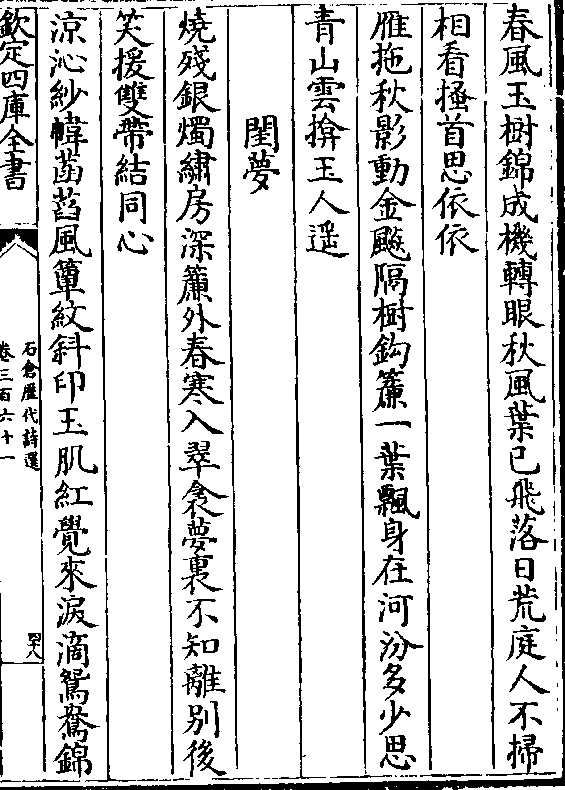 春風玉樹錦成機轉眼秋風葉已飛落日荒庭人不掃
相看搔首思依依
雁拖秋影動金飈隔樹鈎簾一葉飄身在河汾多少思
青山雲揜玉人遥
閨夢
燒殘銀燭繡房深簾外春寒入翠衾夢裏不知離别後
笑援雙帶結同心
涼沁紗幃菡萏風簟紋斜印玉肌紅覺來淚滴鴛鴦錦
欽定四庫全書
石倉歷代詩選
卷三百六十一
四十八